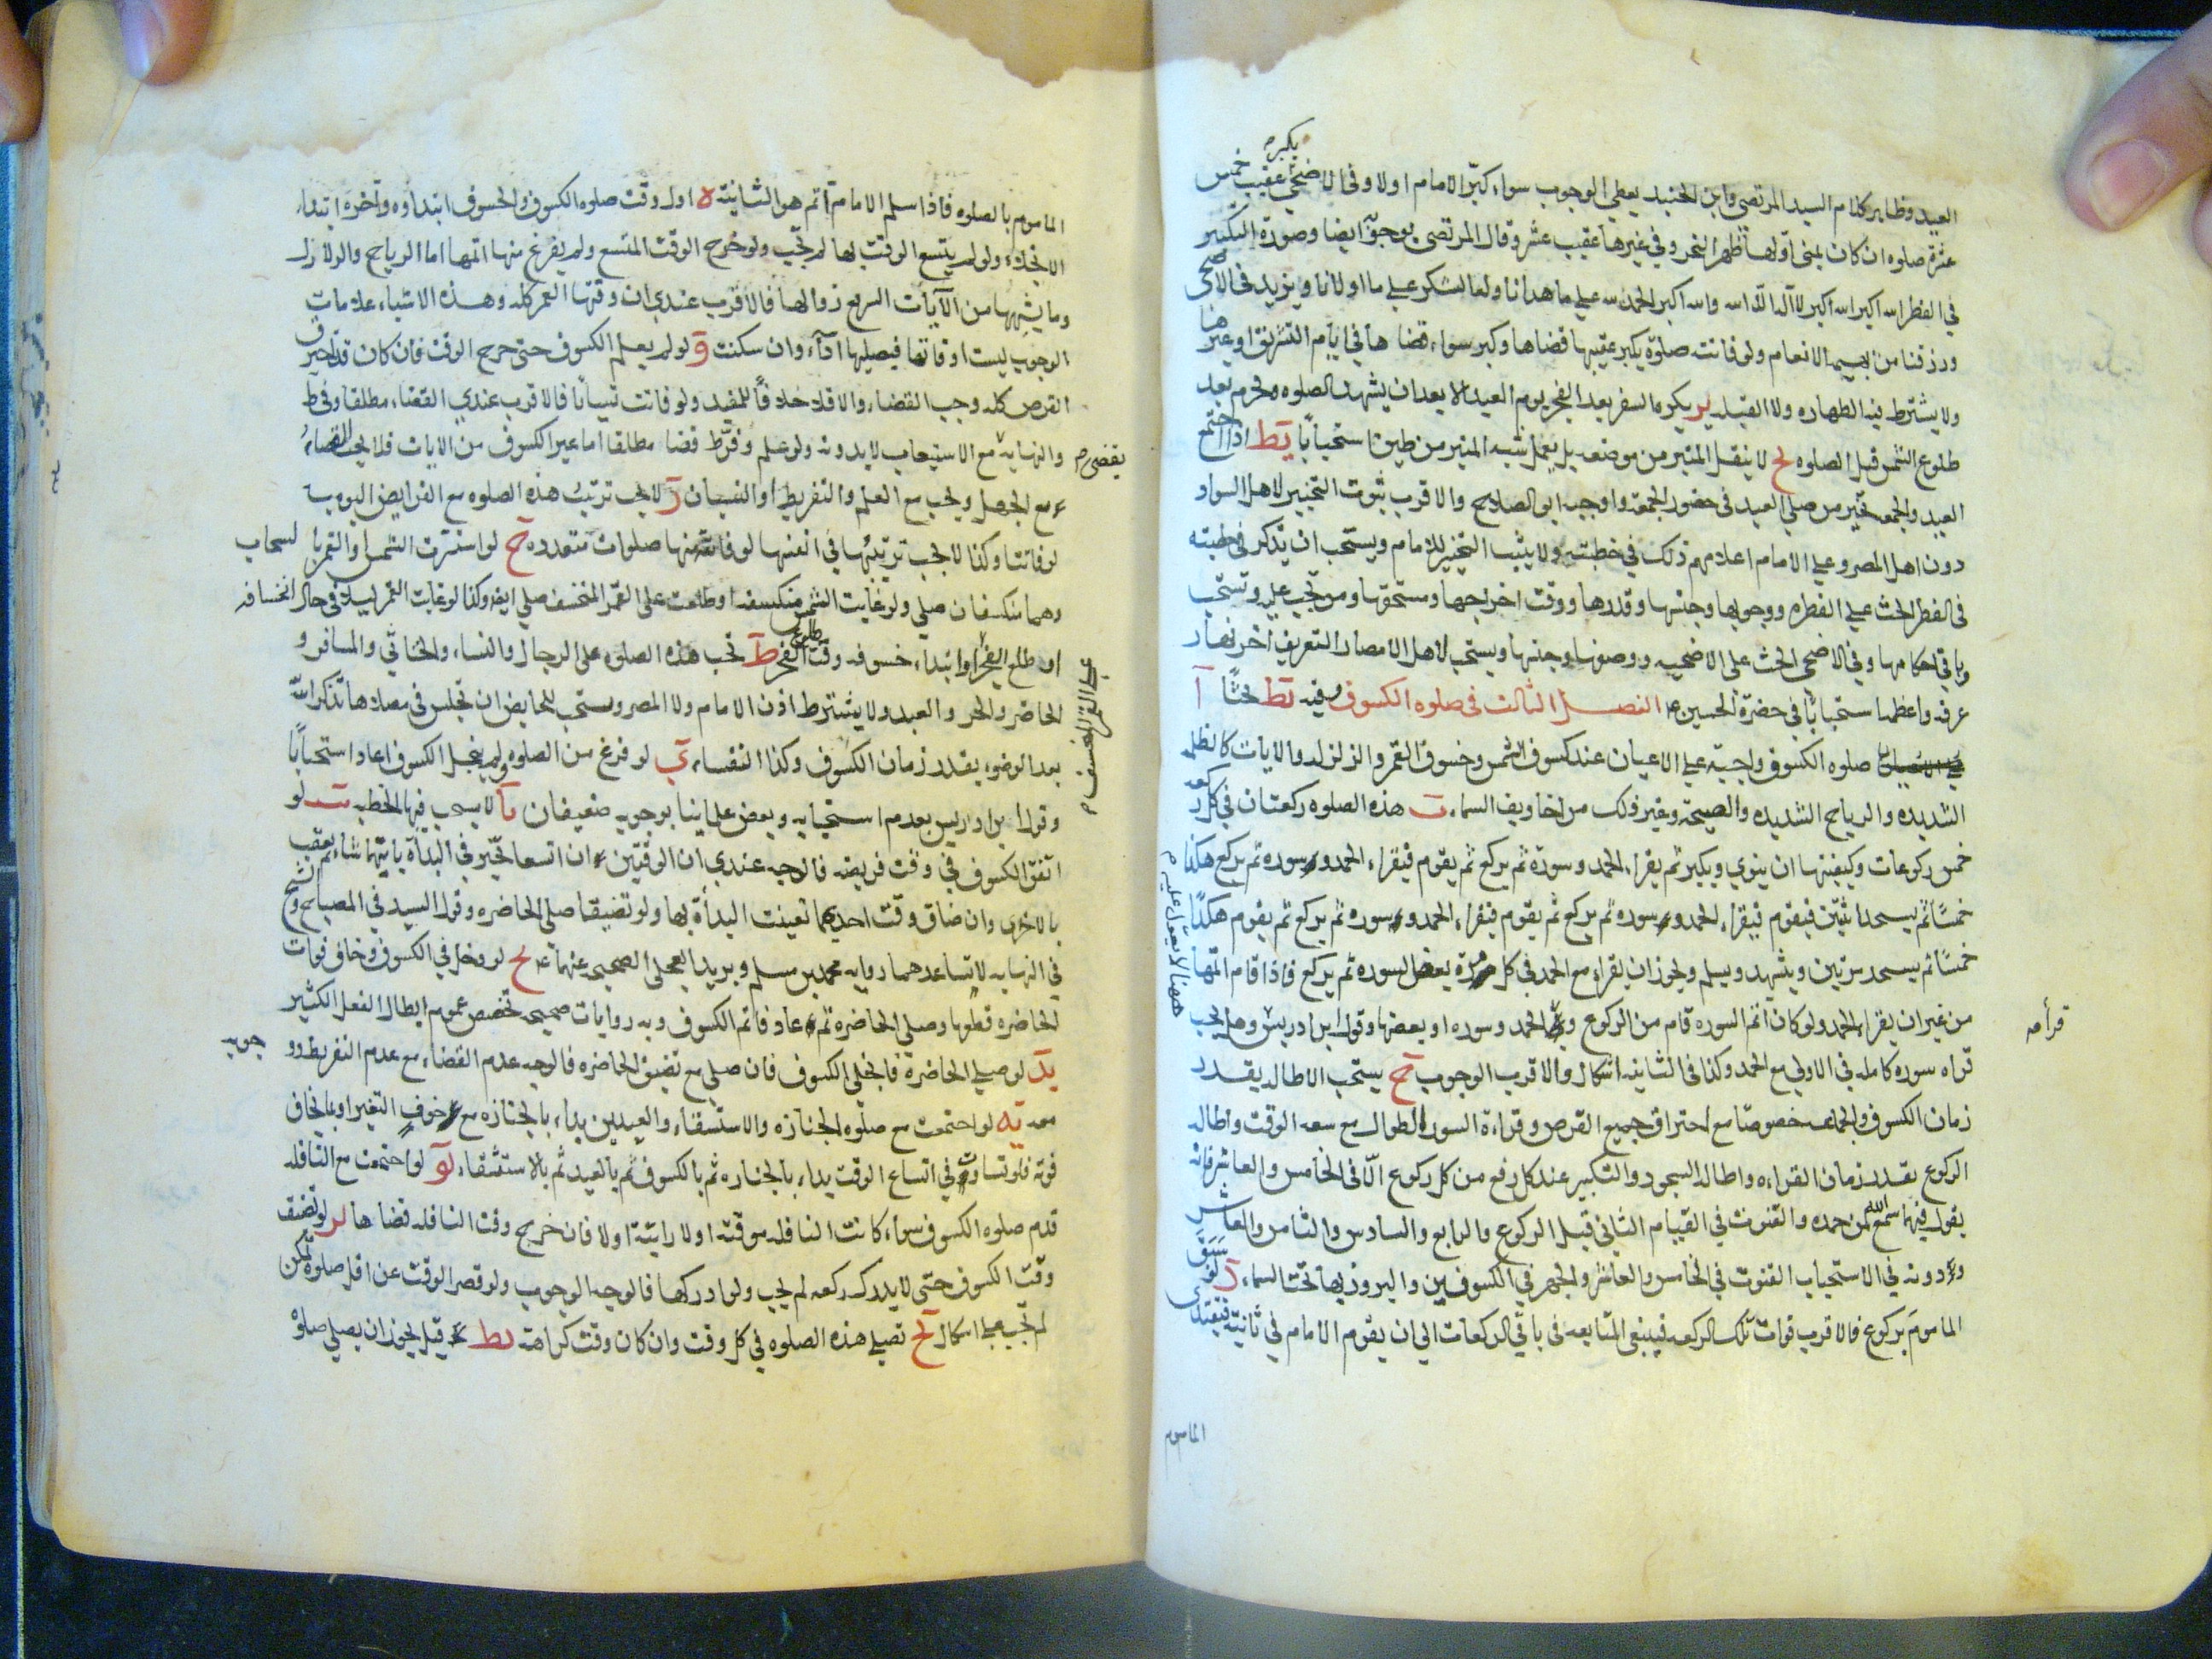 يكبر م
العيد وظاهر كلام السيد المرتضى وابن الجنيد يعطى الوجوب سواء كبّر الامام اولا وفى الاضحى عقيب خمس
عشرة صلوه ان كان بمنى اولها ظهر النحر وفي غيرها عقيب عشر وقال المرتضى بوجوبه ايضا وصورة التكبير
في الفطر الله اكبر الله اكبر لا اله الا الله والله اكبر الحمد لله على ما هدانا وله الشكر على ما اولانا ويزيد فى الاضحى
ورزقنا من بهيمه الانعام ولو فاتته صلوة يكبر عقيبها قضاها وكبر سواء قضاها في ايام التشريق او غيرها
ولا يشترط فيه الطهاره ولا القبله لر يكره السفر بعد الفجر يوم العيد الا بعد ان يشهد الصلوه ويحرم بعد
طلوع الشمس قبل الصلوه لح لا ينقل المنبر من موضعه بل يعمل شبه المنبر من طين استحبابا يط اذا اجتمع
العيد والجمعه تخير من صلى العيد فى حضور الجمعة واوجبه ابو الصلاح والاقرب ثبوت التخيير لاهل السواد
دون اهل المصر وعلى الامام اعلامهم ذلك في خطبته ولا يثبت التخيير للامام ويستحب ان يذكر في خطبته
فى الفطر الحث على الفطره ووجوبها وجنسها وقدرها ووقت اخراجها ومستحقها ومن تجب عليه وتستحب
وباقي احكامها وفي الاضحى الحث على الاضحيه ووصفها وجنسها ويستحب لاهل الامصار التعريف اخر نهار
عرفه واعظمها استحبابا في حضرة الحسين ع الفصل الثالث فى صلوه الكسوف وفيه يط بحثًا ا
صلوه الكسوف واجبة على الاعيان عند كسوف الشمس وخسوف القمر والزلزله والايات كالظلمه
الشديده والرياح الشديده والصيحة وغير ذلك من اخاويف السماء ب هذه الصلوه ركعتان في كل ركعه
خمس ركوعات وكيفيتها ان ينوي ويكبر ثم يقراء الحمد وسورة ثم يركع ثم يقوم فيقراء الحمد وسوره ثم يركع هكذا
خمسًا ثم يسجد اثنتين فيقوم فيقراء الحمد وسوره ثم يركع ثم يقوم فيقراء الحمد وسوره ثم يركع ثم يقوم هكذا
خمسًا ثم يسجد مرتين ويتشهد ويسلم ويجوز ان يقراء مع الحمد في كل مرة بعض السوره ثم يركع فاذا قام اتمها
من غير ان يقراء الحمد ولو كان اتم السوره قام من الركوع الحمد وسوره او بعضها وقول ابن ادريس وهل يجب
قراه سوره كامله في الاولى مع الحمد وكذا فى الثانيه اشكال والاقرب الوجوب ج يستحب الاطاله بقدر
زمان الكسوف والجماعه خصوصًا مع احتراق جميع القرص وقراءة السور الطوال مع سعه الوقت واطاله
الركوع بقدر زمان القراءه واطاله السجود والتكبير عند كل رفع من كل ركوع الّا فى الخامس والعاشر فانه
يقول فيهما سمع الله لمن حمده والقنوت في القيام الثاني قبل الركوع والرابع والسادس والثامن والعاشر
ودونه في الاستحباب القنوت في الخامس والعاشر والجهر في الكسوفين والبروز بها تحت السماء د لو سبق
الماموم بركوع فالاقرب فوات تلك الركعه فينبغى المتابعه فى باقي الركعات الى ان يقوم الامام في ثانيته فيقتدى
قرأ صه
ههنا لا يعول عليه م
الماموم
الماموم بالصلوه فاذا سلم الامام اتم هو الثانية ه اول وقت صلوه الكسوف والخسوف ابتداوه وآخره ابتداء
الانجلاء ولو لم يتسع الوقت لها لم تجب ولو خرج الوقت المتسع ولم يفرغ منها اتمها اما الرياح والزلازل
وما يشبهها من الآيات السريع زوالها فالاقرب عندي ان وقتها العمر كله وهذه الاشياء علامات
الوجوب ليست اوقاتها فيصليها اداء وان سكنت و لو لم يعلم الكسوف حتى خرج الوقت فان كان قد احترق
القرص كله وجب القضاء والا فلا خلافا للمفيد ولو فاتت نسيانا فالاقرب عندي القضاء مطلقا وفي ط
والنهايه يقضى م مع الاستيعاب لا بدونه ولو علم وفرّط قضا مطلقا اما غير الكسوف من الايات فلا يجب القضاء
مع الجهل ويجب مع العلم والتفريط او النسيان ز لا يجب ترتيب هذه الصلوه مع الفرايض اليوميه
لو فاتتا وكذا لا يجب ترتيبها في انفسها لو فاتته منها صلوات متعدده ح لو استترت الشمس او القمر بالسحاب
وهما منكسفان صلى ولو غابت الشمس منكسفه او طلعت على القمر المنخسف صلى ايضا وكذا لو غاب القمر ليلا في حال انخسافه
او طلع الفجر او ابتداء خسوفه وقت طلوع الفجر ط تجب هذه الصلوه على الرجال والنساء والخناثى والمسافر و
الحاضر والحر والعبد ولا يشترط اذن الامام ولا المصر ويستحب للحايض ان تجلس فى مصلاها تذكر الله
على القمر المنخسف م
بعد الوضوء بقدر زمان الكسوف وكذا النفساء ي لو فرغ من الصلوه ولم ينجل الكسوف اعاد استحبابا
وقول ابن ادريس بعدم استحبابه وبعض علمائنا بوجوبه ضعيفان يا لا يستحب فيها الخطبه يب لو
اتفق الكسوف في وقت فريضه فالوجه عندي ان الوقتين ان اتسعا تخير في البدأة بايتهما شاء ثم يعقب
بالاخرى وان ضاق وقت احديهما تعينت البدأة بها ولو تضيقتا صلى الحاضره وقول السيد في المصباح والشيخ
في النهايه لا تساعدهما روايه محمد بن مسلم وبريد العجلى الصحيحه عنهما ع يج لو دخل في الكسوف وخاف فوات
الحاضره قطعها وصلى الحاضره ثم عاد فاتم الكسوف وبه روايات صحيحه تخصص عموم ابطال الفعل الكثير
يد لو صلى الحاضرة فانجلى الكسوف فان صلى مع تضيق الحاضره فالوجه عدم القضاء مع عدم التفريط ووجوبه
معه يه لو اجتمعت مع صلوه الجنازه والاستسقاء والعيدين بداء بالجنازه مع خوف التغير او ما يخاف
فوته فلو تساوت في اتساع الوقت بداء بالجنازه ثم بالكسوف ثم بالعيد ثم بالاستسقاء يو لو اجتمعت مع النافله
قدم صلوه الكسوف سواء كانت النافله موقته اولا راتبة اولا فان خرج وقت النافله قضاها لر لو تضيق
وقت الكسوف حتى لا يدرك ركعه لم يجب ولو ادركها فالوجه الوجوب ولو قصر الوقت عن اقل صلوة تمكن
لم تجب على اشكال لح تصلى هذه الصلوه في كل وقت وان كان وقت كراهة يط قيل يجوز ان يصلى صلوة